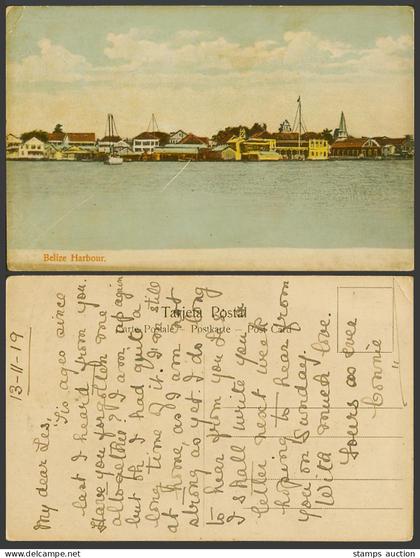 Belize Harbour.
Tarjeta Postal
Carte Postale — Postkarte — Post Card
13-11-19
My dear Les,
'Tis ages since
last I heard from you.
Have you forgotten me
altogether? I am up again
but oh I had quite a
long time of it. I'm still
at home, as I am not
strong as yet. I do long
to hear from you Les
I shall write you a
letter next week
hoping to hear from
you on Sunday.
With much love.
Yours as ever
Connie
stamps auction
stamps auction